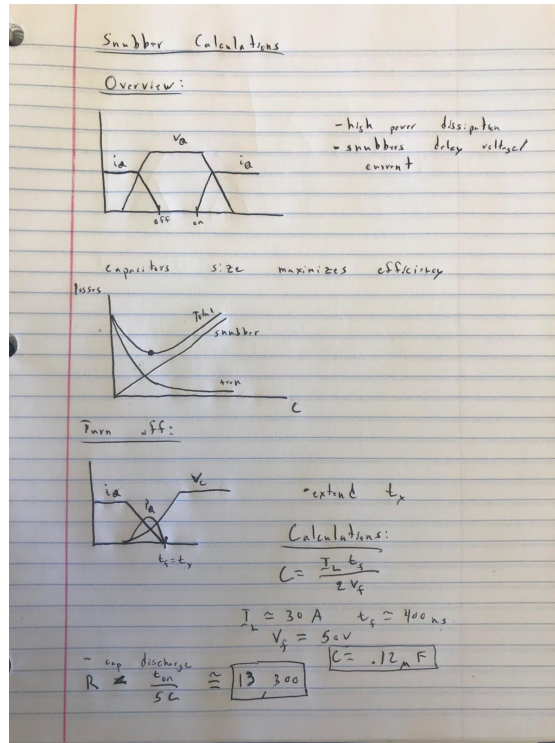 Snubber Calculations
Overview:
- high power dissipation
- snubbers delay voltage/
current
iQ VQ iQ
off on
capacitors size maximizes efficiency
losses
Total
snubber
tran
C
Turn off:
iQ PQ Vc
tf = tx
- extend tx
Calculations:
C = IL tf / 2 Vf
IL ≃ 30 A tf ≃ 400 ns
Vf = 50V
C = .12 μF
- cap discharge
R < ton / 5C ≅ 13,300